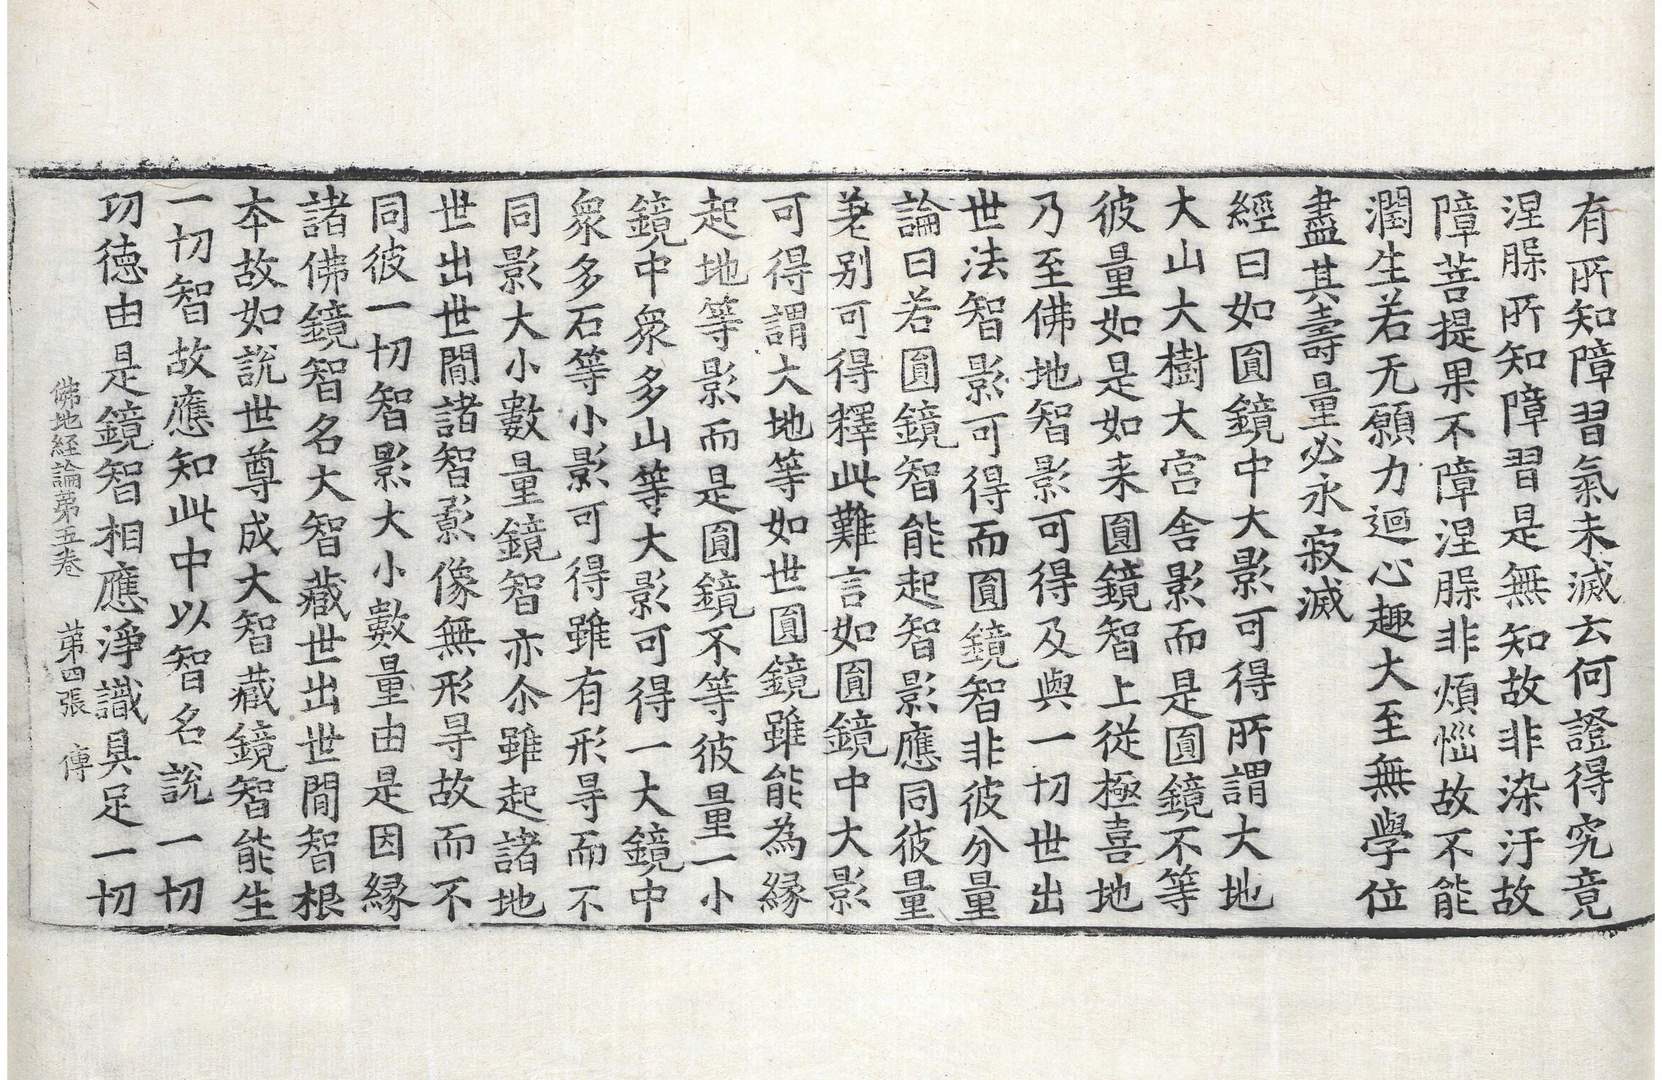 有所知障習氣未滅云何證得究竟
涅槃所知障習是無知故非染汙故
障菩提果不障涅槃非煩惱故不能
潤生若无願力迴心趣大至無學位
盡其壽量必永寂滅
經曰如圓鏡中大影可得所謂大地
大山大樹大宮舍影而是圓鏡不等
彼量如是如来圓鏡智上從極喜地
乃至佛地智影可得及與一切世出
世法智影可得而圓鏡智非彼分量
論曰若圓鏡智能起智影應同彼量
差別可得釋此難言如圓鏡中大影
可得謂大地等如世圓鏡雖能為緣
起地等影而是圓鏡不等彼量一小
鏡中衆多山等大影可得一大鏡中
衆多石等小影可得雖有形㝵而不
同影大小數量鏡智亦尒雖起諸地
世出世間諸智影像無形㝵故而不
同彼一切智影大小數量由是因緣
諸佛鏡智名大智藏世出世間智根
本故如說世尊成大智藏鏡智能生
一切智故應知此中以智名說一切
功德由是鏡智相應淨識具足一切
佛地経論苐五卷　苐四張　傳